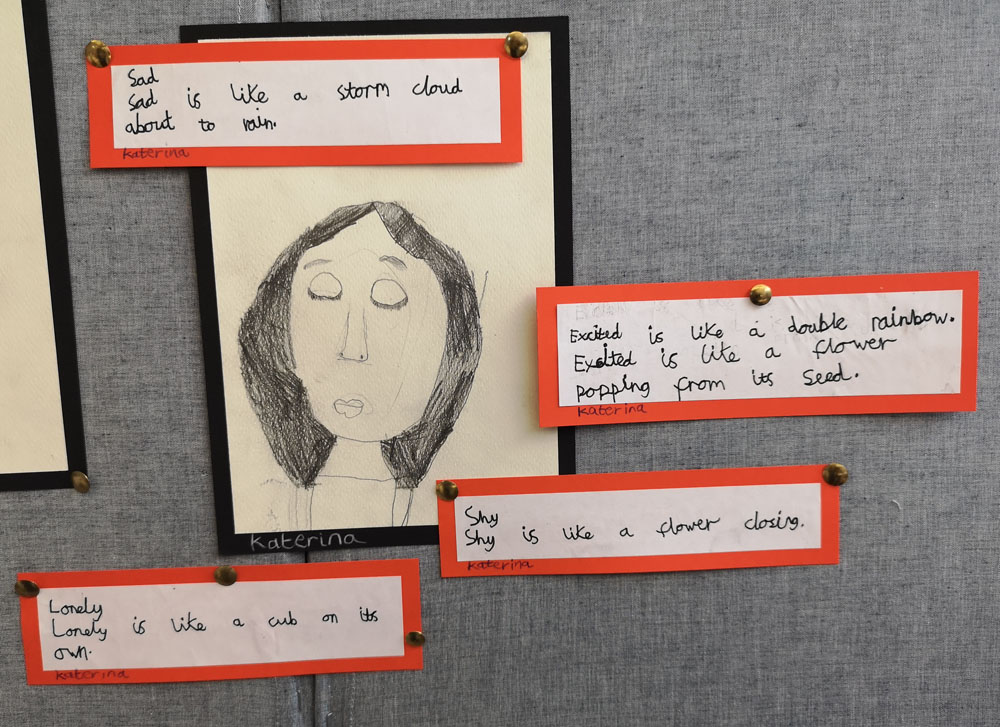 Sad
Sad is like a storm cloud
about to rain.
Katerina
Excited is like a double rainbow.
Excited is like a flower
popping from its seed.
Katerina
Shy
Shy is like a flower closing.
Katerina
Katerina
Lonely
Lonely is like a cub on its
own.
Katerina